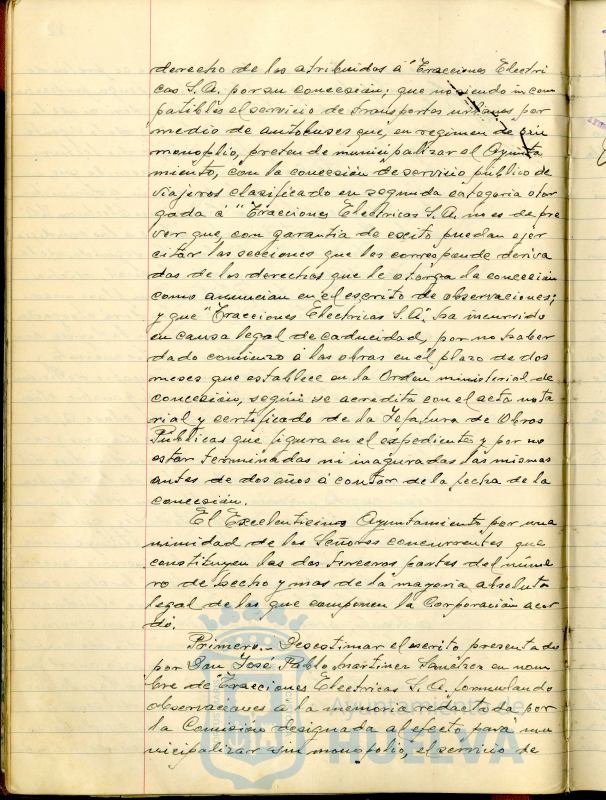 derecho de los atribuidos á "Tracciones Electri
cas S.A. por su concesión; que no siendo incom
patibles el servicio de transportes urbanos por
medio de autobuses que, en regimen de sin
monopolio, pretende municipalizar el Ayunta
miento, con la concesión de servicio público de
viajeros clasificado en segunda categoria otor
gada á "Tracciones Electricas S.A. no es de pre
ver que, con garantia de exito puedan ejer
citar las acciones que les corresponde deriva
das de los derechos que le otorga la concesión
como anuncian en el escrito de observaciones;
y que "Tracciones Electricas S.A." ha incurrido
en causa legal de caducidad, por no haber
dado comienzo á las obras en el plazo de dos
meses que establece en la Orden ministerial de
concesión, según se acredita con el acta nota
rial y certificado de la Jefatura de Obras
Publicas que figura en el expediente y por no
estar terminadas ni inaguradas las mismas
antes de dos años á contar de la fecha de la
concesión.
El Excelentisimo Ayuntamiento por una
nimidad de los Señores concurrentes que
constituyen las dos terceras partes del núme
ro de hecho y mas de la mayoria absoluta
legal de las que componen la Corporación acor
dó.
Primero.- Desestimar el escrito presentado
por Don José Pablo Martinez Sanchez en nom
bre de "Tracciones Electricas S.A. formulando
observaciones á la memoria redactada por
la Comision designada al efecto para mu
nicipalizar sin monopolio, el servicio de
Ayuntamiento de
HUELVA